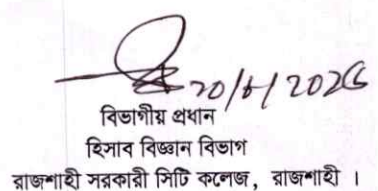 20/6/2025
বিভাগীয় প্রধান
হিসাব বিজ্ঞান বিভাগ
রাজশাহী সরকারী সিটি কলেজ, রাজশাহী ।